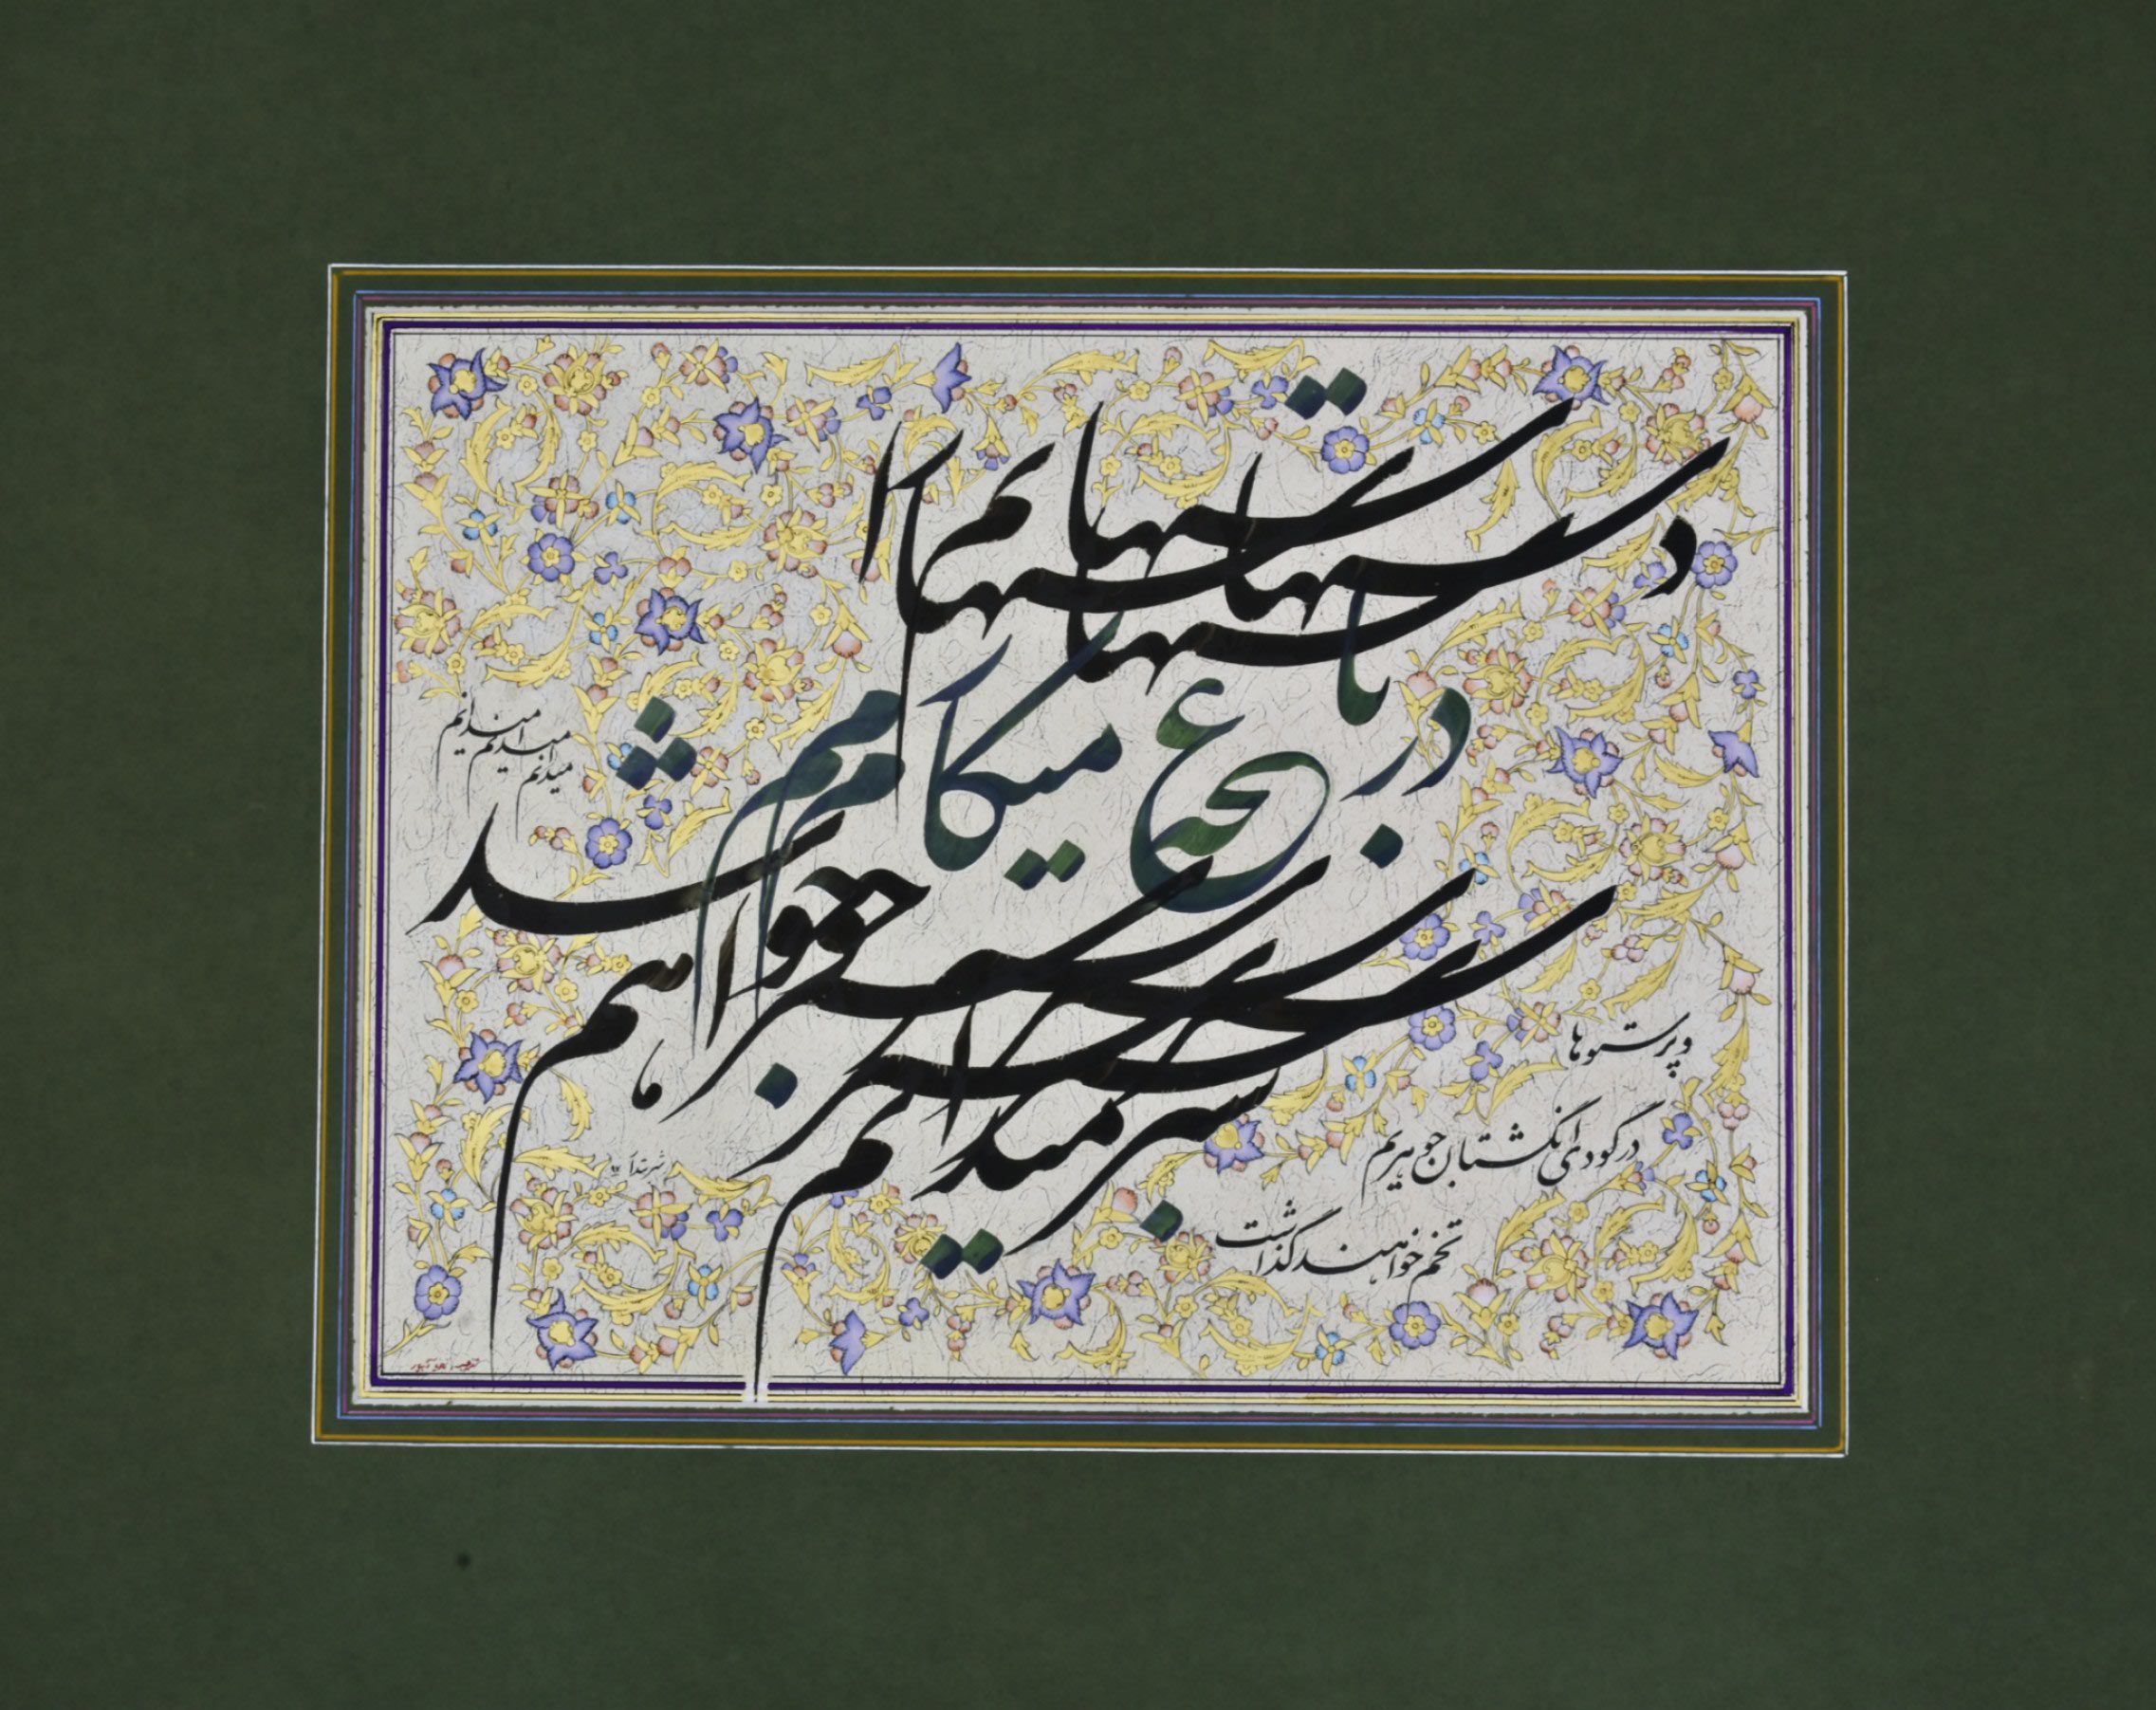 دستهایم را
در باغچه میکارم
سبز خواهم شد
میدانم
میدانم میدانم میدانم
و پرستوها
در گودی انگشتان جوهریم
تخم خواهند گذاشت